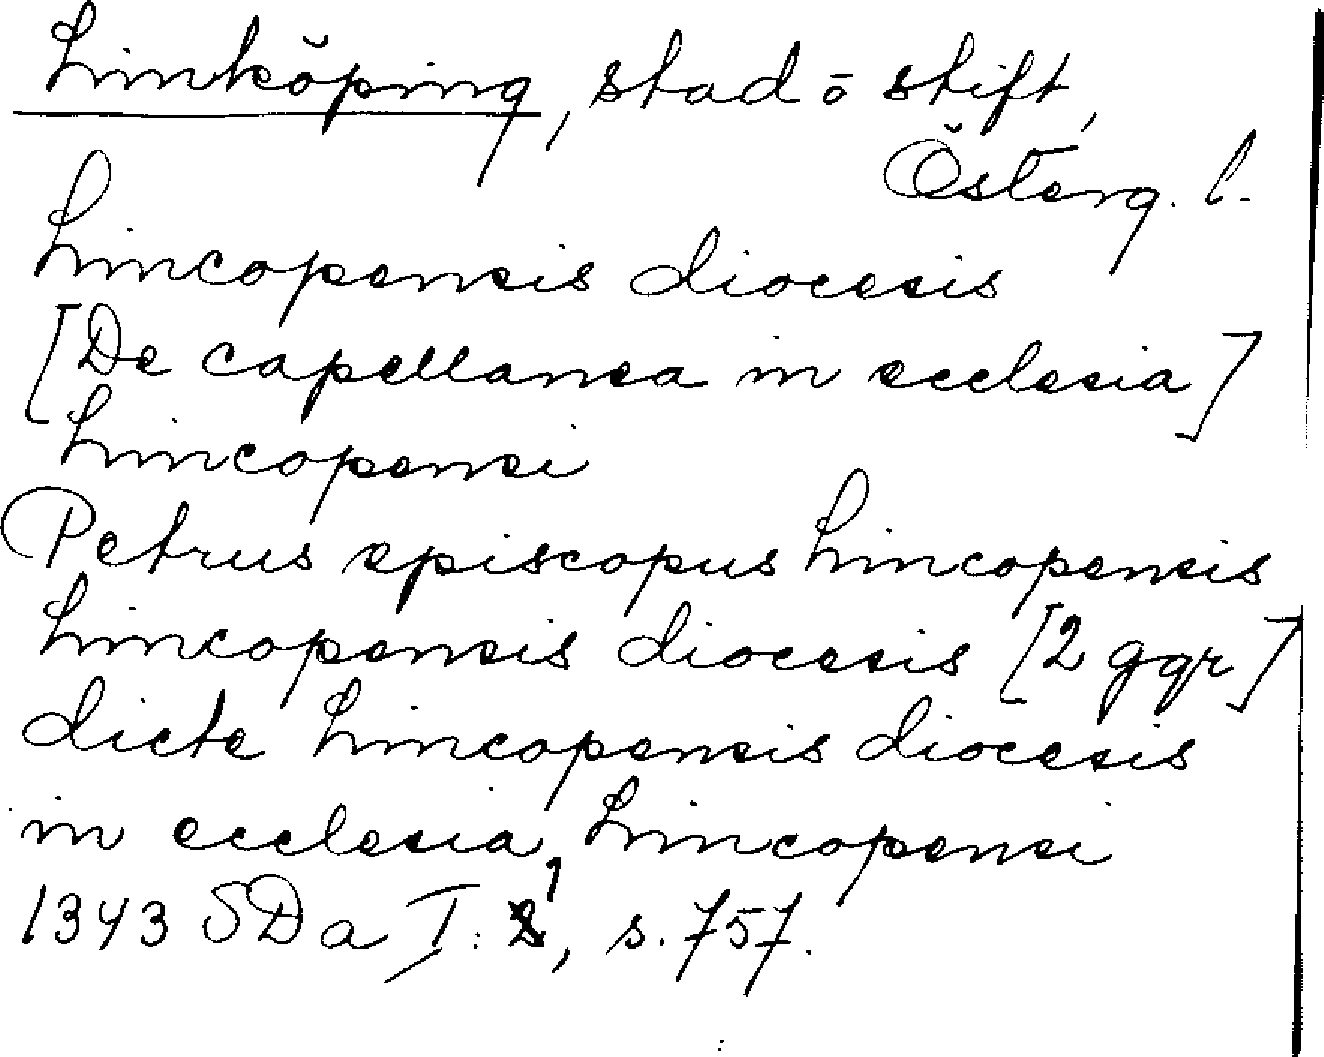 Linköping, stad o stift,
Österg. l.
Lincopensis diocesis
[De capellanea in ecclesia]
Lincopensi
Petrus episcopus Lincopensis
Lincopensis diocesis [2 ggr]
dicte Lincopensis diocesis
in ecclesia Lincopensi
1343 SDa I: 1, s. 757.